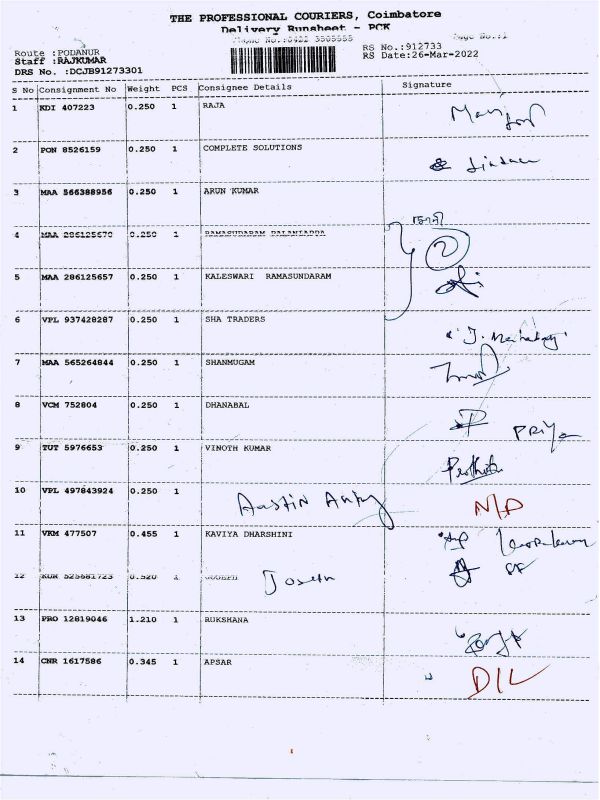 THE PROFESSIONAL COURIERS, Coimbatore
Delivery Runsheet - PCK
Phone No.:0422 3505555 Page No.:1
Route :PODANUR RS No.:912733
Staff :RAJKUMAR RS Date:26-Mar-2022
DRS No. :DCJB91273301
S No Consignment No Weight PCS Consignee Details Signature
1 KDI 407223 0.250 1 RAJA
2 PON 8526159 0.250 1 COMPLETE SOLUTIONS
3 MAA 566388956 0.250 1 ARUN KUMAR
4 MAA 286125670 0.250 1 RAMASUNDARAM PALANIAPPA
5 MAA 286125657 0.250 1 KALESWARI RAMASUNDARAM
6 VPL 937428287 0.250 1 SHA TRADERS
7 MAA 565264844 0.250 1 SHANMUGAM
8 VCM 752804 0.250 1 DHANABAL PRIYA
9 TUT 5976653 0.250 1 VINOTH KUMAR
10 VPL 497843924 0.250 1 Austin Antny N/D
11 VKM 477507 0.455 1 KAVIYA DHARSHINI
12 KUR 525681723 0.520 1 JOSEPH Joseph
13 PRO 12819046 1.210 1 RUKSHANA
14 CNR 1617586 0.345 1 APSAR D/L